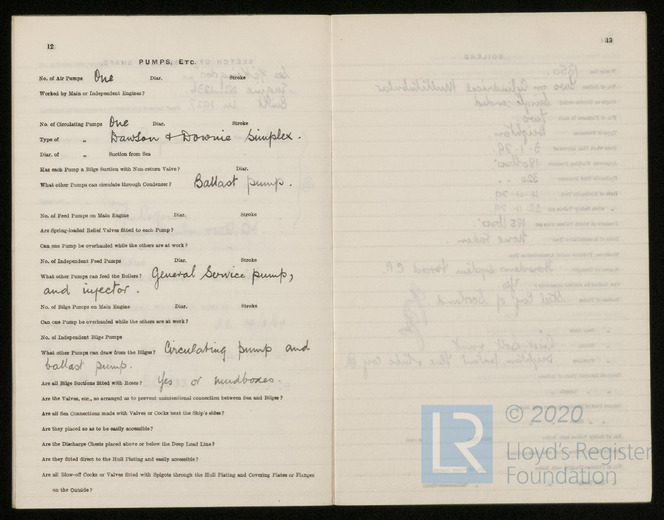 12
PUMPS, ETC.
No. of Air Pumps One Diar. Stroke
Worked by Main or Independent Engines?
No. of Circulating Pumps One Diar. Stroke
Type of „ Dawson & Downie Simplex.
Diar. of „ Suction from Sea
Has each Pump a Bilge Suction with Non-return Valve? Diar.
What other Pumps can circulate through Condenser? Ballast pump.
No. of Feed Pumps on Main Engine Diar. Stroke
Are Spring-loaded Relief Valves fitted to each Pump?
Can one Pump be overhauled while the others are at work?
No. of Independent Feed Pumps Diar. Stroke
What other Pumps can feed the Boilers? General Service pump,
and injector.
No. of Bilge Pumps on Main Engine Diar. Stroke
Can one Pump be overhauled while the others are at work?
No. of Independent Bilge Pumps
What other Pumps can draw from the Bilges? Circulating pump and
ballast pump.
Are all Bilge Suctions fitted with Roses? Yes or mudboxes.
Are the Valves, etc., so arranged as to prevent unintentional connection between Sea and Bilges?
Are all Sea Connections made with Valves or Cocks next the Ship's sides?
Are they placed so as to be easily accessible?
Are the Discharge Chests placed above or below the Deep Load Line?
Are they fitted direct to the Hull Plating and easily accessible?
Are all Blow-off Cocks or Valves fitted with Spigots through the Hull Plating and Covering Plates or Flanges
on the Outside?
13
LR
© 2020
Lloyd's Register
Foundation